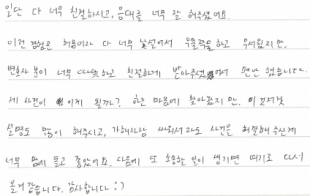 일단 다 너무 친절하시고, 응대를 너무 잘 해주셨어요.
이런 경험은 처음이라 다 너무 낯설어서 우물쭈물하고 무서웠지만,
변호사 분이 너무 따뜻하고 친절하게 받아주셔서 편안 했습니다.
제 사건이 이게 될까? 하는 마음에 찾아왔지만, 이
설명도 많이 해주시고, 가해자랑 싸워서라도 사건을 해결해주신게
너무 맘에 들고 좋았어요. 다음에 또 이 생기면 여기로 다시
올거 같습니다. 감사합니다 :)